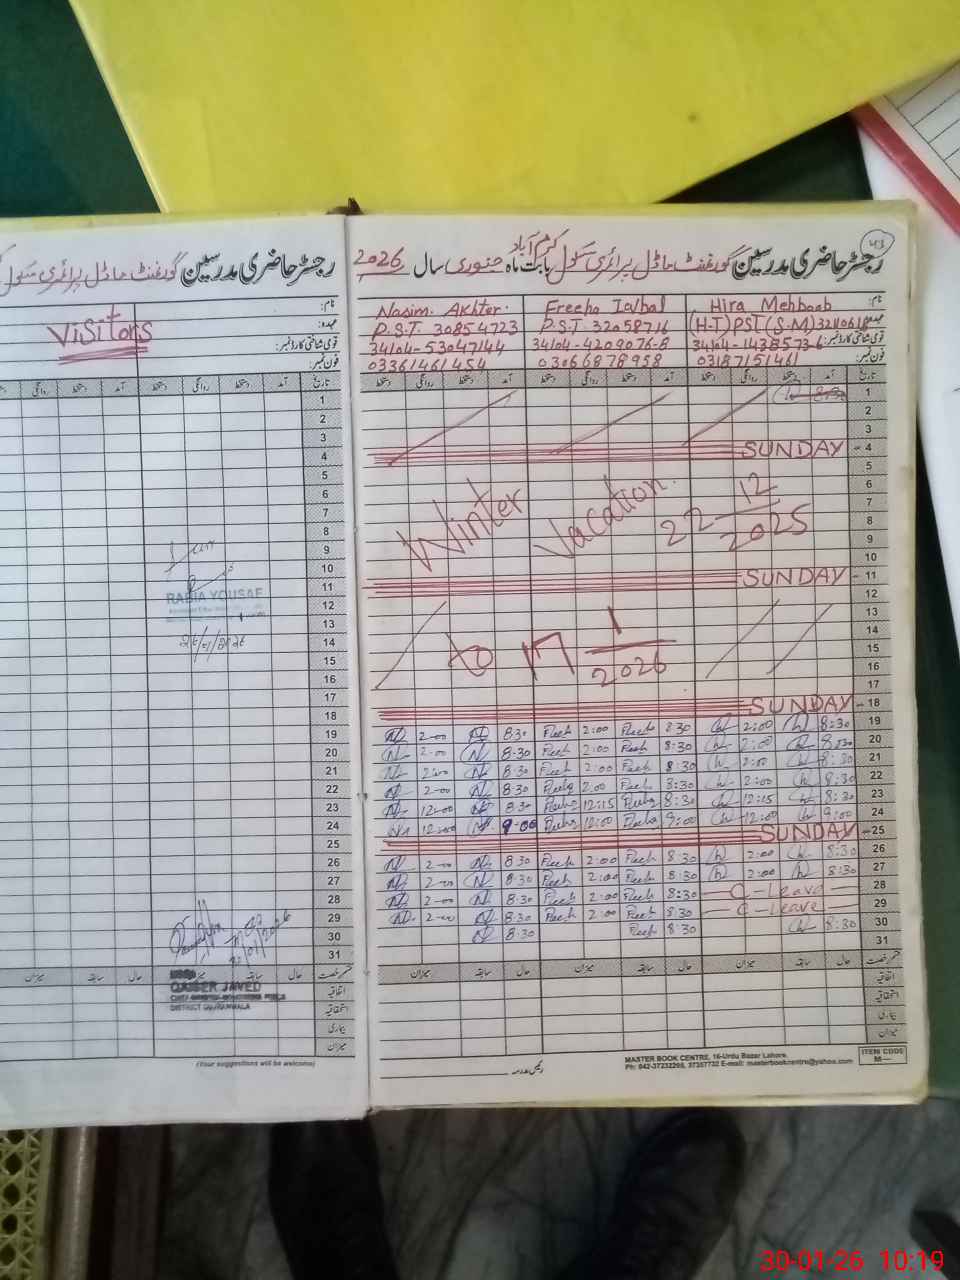 رجسٹر حاضری مدرسین گورنمنٹ ماڈل پرائمری سکول
Visitors
نام:
عہدہ:
قومی شناختی کارڈ نمبر:
فون نمبر:
تاریخ آمد دستخط روانگی دستخط آمد دستخط
1
2
3
4
5
6
7
8
9
10
11
RABIA YOUSAF
12
13
14
15
16
17
18
19
20
21
22
23
24
25
26
27
28
29
30
31
قسم رخصت حال سابقہ میزان حال سابقہ میزان
QAISER JAVED
DISTRICT GUJRANWALA
اتفاقیہ
استحقاقیہ
بیماری
میزان
(Your suggestions will be welcome)
رجسٹر حاضری مدرسین گورنمنٹ ماڈل پرائمری سکول کرم آباد بابت ماہ جنوری سال 2026
نام: Hira Mehboob Freeha Iqbal Nasim Akhter.
عہدہ: (H-T) PST (S-M) P.S.T. 32058716 P.S.T. 30854723
قومی شناختی کارڈ نمبر: 34104-4209076-8 34104-53047144
فون نمبر: 03187151461 03066878958 03361461454
تاریخ آمد دستخط روانگی دستخط آمد دستخط روانگی دستخط آمد دستخط روانگی دستخط
1
2
3
SUNDAY - 4
5
6
7
8
9
10
Winter Vacation. 22 12/2025
SUNDAY - 11
12
13
14
15
16
17
to 17 1/2026
SUNDAY - 18
2-00 8:30 2:00 8:30 2:00 8:30 19
2-00 8:30 2:00 8:30 2:00 8:30 20
2:00 8:30 2:00 8:30 2:00 8:30 21
2-00 8:30 2:00 8:30 2:00 8:30 22
12-00 8:30 12:15 8:30 12:15 8:30 23
12-00 9-00 12:00 9:00 12:00 9:00 24
SUNDAY - 25
2-00 8:30 2:00 8:30 2:00 8:30 26
2-00 8:30 2:00 8:30 2:00 8:30 27
2-00 8:30 2:00 8:30 C-Leave 28
2-00 8:30 2:00 8:30 C-Leave 29
8:30 8:30 8:30 30
31
قسم رخصت حال سابقہ میزان حال سابقہ میزان حال سابقہ میزان
اتفاقیہ
استحقاقیہ
بیماری
میزان
رئیس مدرسہ
MASTER BOOK CENTRE, 16-Urdu Bazar Lahore.
Ph: 042-37232265, 37357732 E-mail: masterbookcentre@yahoo.com
ITEM CODE
M—
30-01-26 10:19